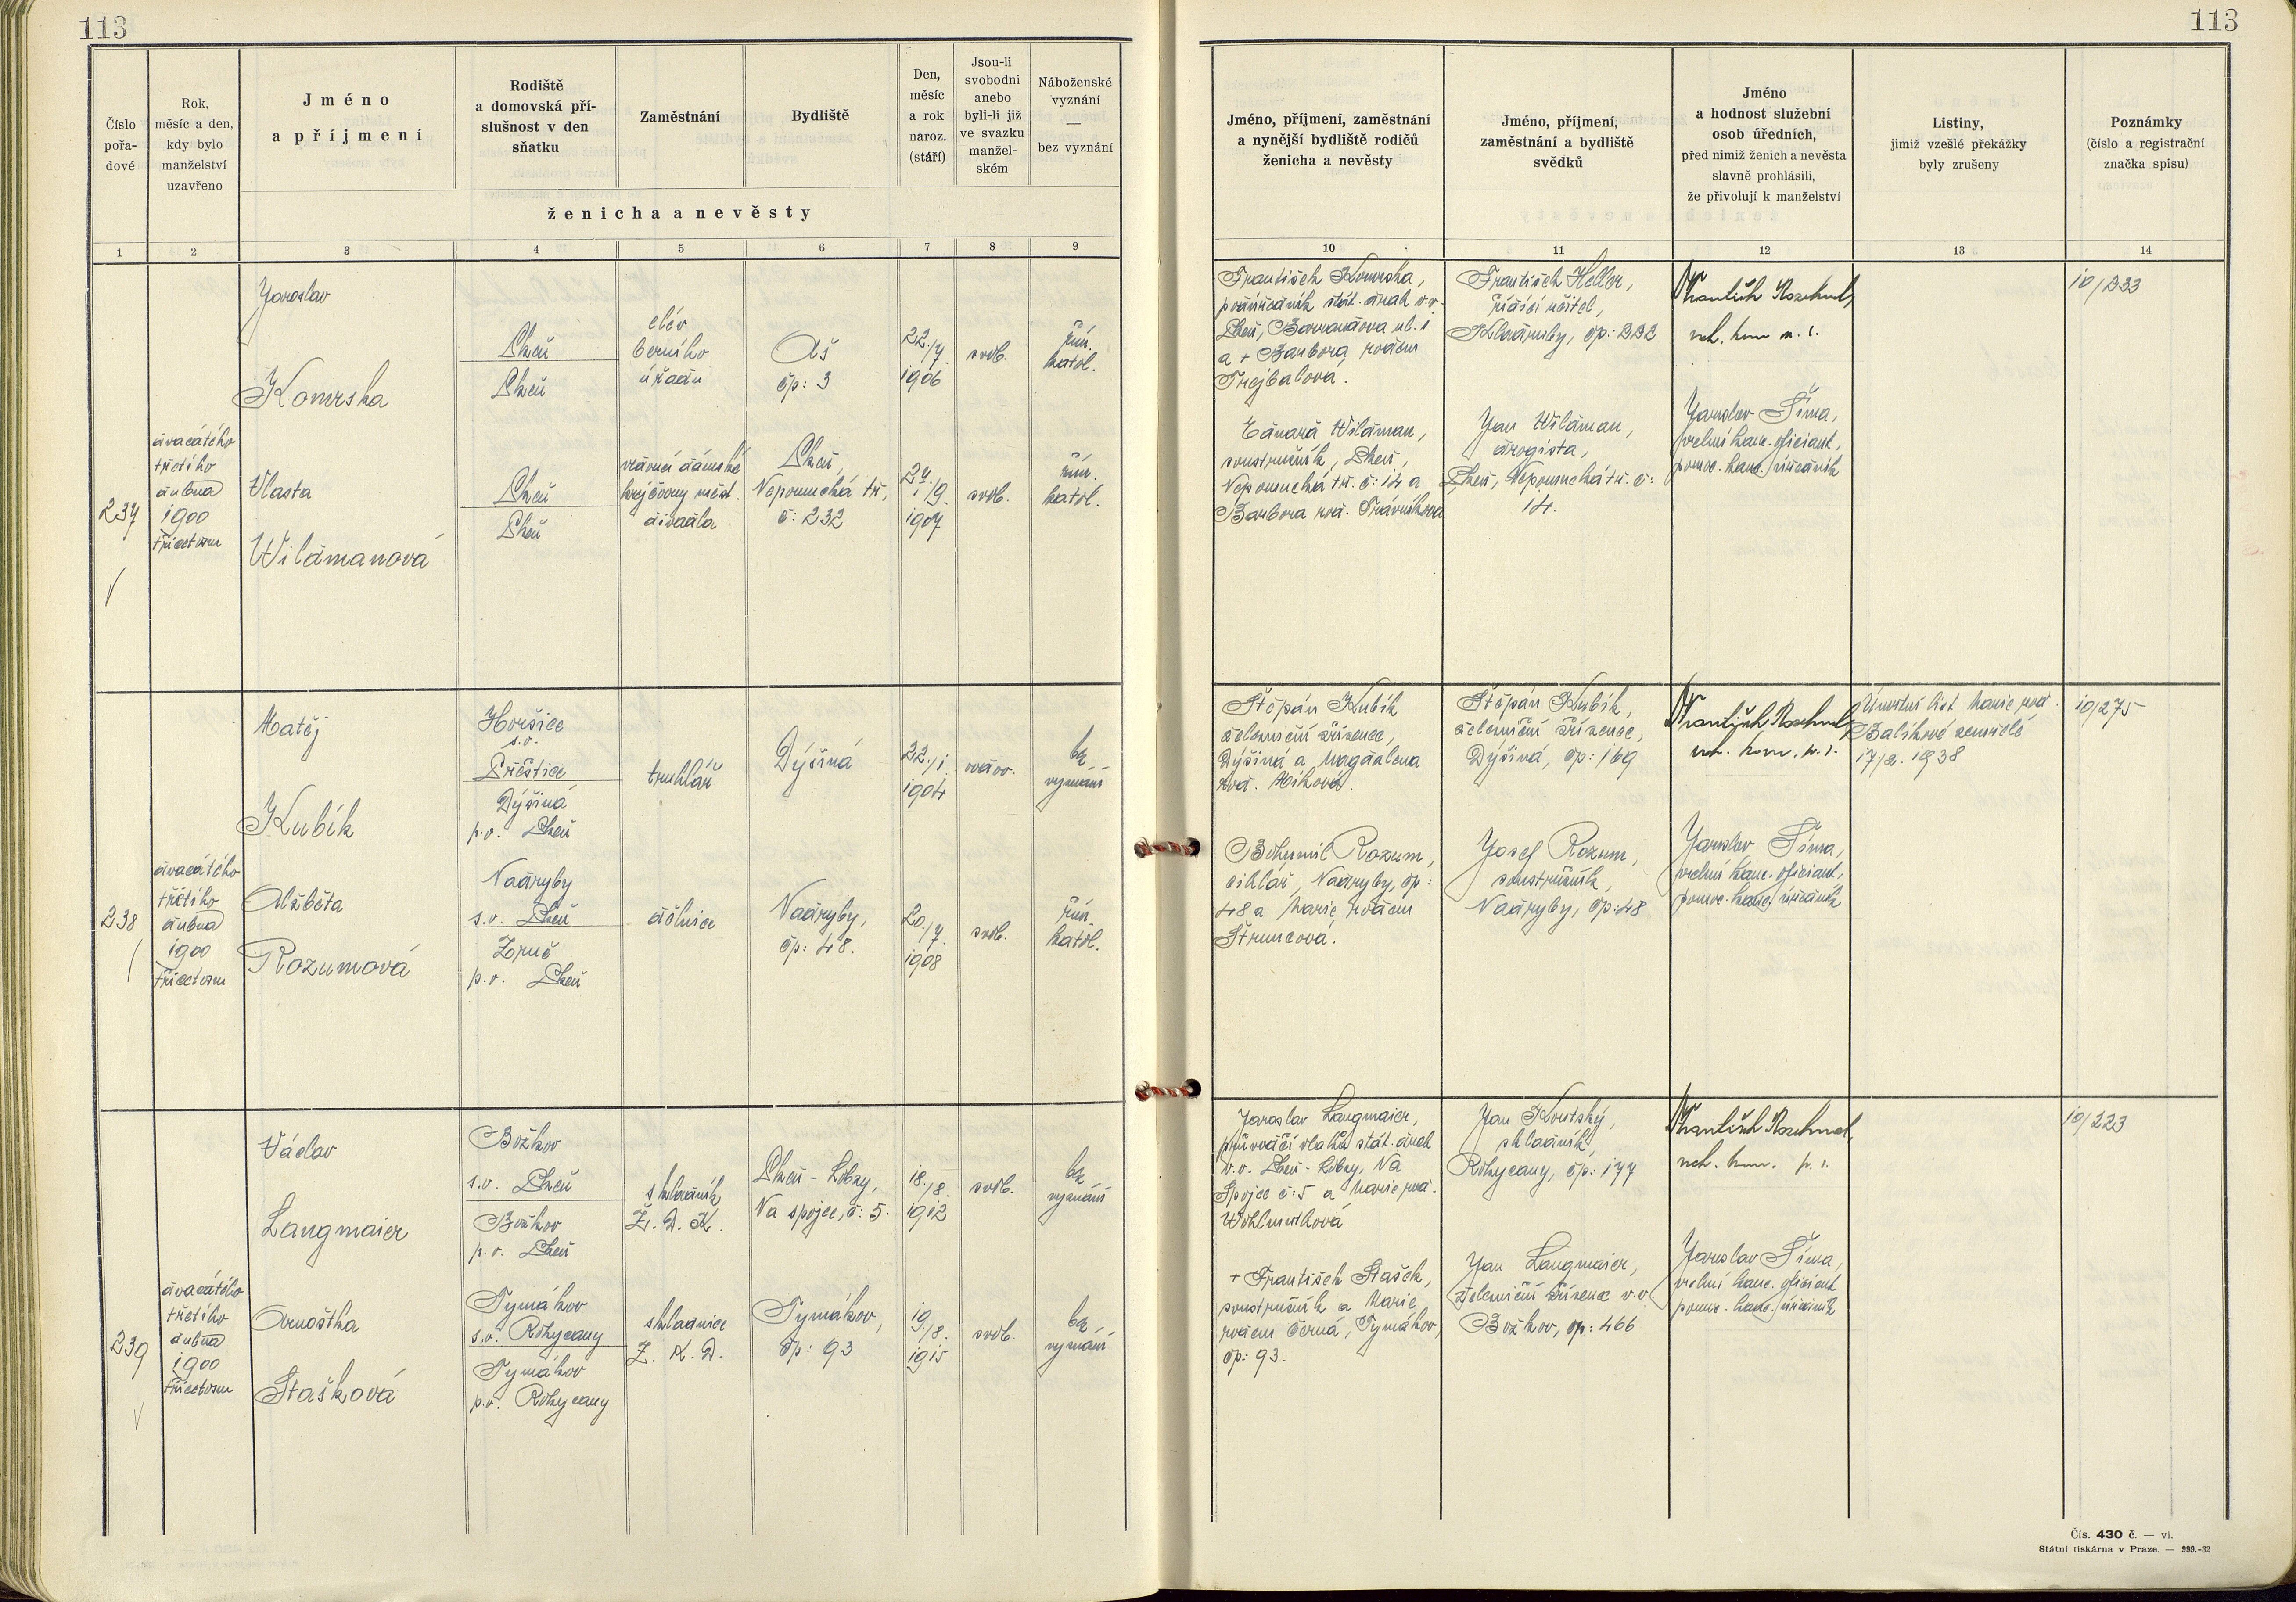 113
113
Číslo
pořa-
dové
Rok,
měsíc a den,
kdy bylo
manželství
uzavřeno
Jméno
a příjmení
Rodiště
a domovská pří-
slušnost v den
sňatku
Zaměstnání
Bydliště
Den,
měsíc
a rok
naroz.
(stáří)
Jsou-li
svobodni
anebo
byli-li již
ve svazku
manžel-
ském
Náboženské
vyznání
—
bez vyznání
ženicha a nevěsty
1 2 3 4 5 6 7 8 9
Jméno, příjmení, zaměstnání
a nynější bydliště rodičů
ženicha a nevěsty
Jméno, příjmení,
zaměstnání a bydliště
svědků
Jméno
a hodnost služební
osob úředních,
před nimiž ženich a nevěsta
slavně prohlásili,
že přivolují k manželství
Listiny,
jimiž vzešlé překážky
byly zrušeny
Poznámky
(číslo a registrační
značka spisu)
10 11 12 13 14
237
dvacátého
třetího
dubna
1900
třicetosm
Jaroslav
Komrska
Plzeň
Plzeň
elév
berního
úřadu
Aš
čp: 3
22./7.
1906
svob.
řím.
katol.
Vlasta
Wildmanová
Plzeň
Plzeň
vedoucí dámské
krejčovny měst.
divadla
Plzeň,
Nepomucká tř,
č: 232
24.
1/9.
1907
svob.
řím.
katol.
František Komrska,
poúředník stát. drah v.v.
Plzeň, ul. 1
a + Barbora, rodem
Trejbalová.
Eduard Wildman,
soustružník, Plzeň,
Nepomucká tř. č: 14 a
Barbora roz. Trávníčková
František Heller,
řídící učitel,
čp: 232
Jan Wildman,
drogista,
Plzeň, Nepomucká tř. č:
14.
František
rch. kom m. r.
Jaroslav Šíma,
vrchní kanc. oficiant,
pomoc. kanc. úředník
10/233
238
dvacátého
třetího
dubna
1900
třicetosm
Matěj
Kubík
Horšice
s.o.
Přeštice
Dýšiná
p.o. Plzeň
truhlář
Dýšiná
22./1.
1904
vdov.
bez
vyznání
Alžběta
Rozumová
Nadryby
s.o. Plzeň
Zruč
p.o. Plzeň
dělnice
Nadryby,
čp: 48.
20./
7.
1908
svob.
řím.
katol.
Štěpán Kubík
železniční zřízenec,
Dýšiná a Magdalena
roz. Míková.
Bohumil Rozum,
cihlář, Nadryby, čp:
48 a Marie, rodem
Štruncová.
Štěpán Kubík,
železniční zřízenec,
Dýšiná, čp: 169
Josef Rozum,
soustružník,
Nadryby, čp: 48
František
rch. kom. p. r.
Jaroslav Šíma,
vrchní kanc. oficiant,
pomoc. kanc. úředník
Úmrtní list Marie roz.
Balíkové zemřelé
17/2. 1938
10/275
239
dvacátého
třetího
dubna
1900
třicetosm
Václav
Langmaier
Božkov
s.o. Plzeň
Božkov
p.o. Plzeň
skladník
Z. D. K.
Plzeň - Lobzy,
Na spojce, č: 5.
18./8.
1912
svob.
bez
vyznání
Arnoštka
Stašková
Tymákov
s.o. Rokycany
Tymákov
p.o. Rokycany
skladnice
Z. K. D.
Tymákov,
čp: 93
19./8.
1915
svob.
bez
vyznání
Jaroslav Langmaier,
průvodčí vlaků stát. drah
v.v. Plzeň - Lobzy, Na
Spojce č: 5 a Marie roz.
Wohlmuthová
+ František Stašek,
soustružník a Marie
rodem Černá, Tymákov,
čp: 93.
Jan Koutský,
skladník,
Rokycany, čp: 177
Jan Langmaier,
železniční zřízenec v.v.
Božkov, čp: 466
František
rch. kom. p. r.
Jaroslav Šíma,
vrchní kanc. oficiant
pomoc. kanc. úředník
10/223
Čís. 430 č. — vl.
Státní tiskárna v Praze. — 939.-32